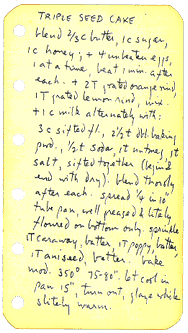 TRIPLE SEED CAKE
blend 2/3 c butter, 1c sugar,
1c honey; + 4 unbeaten eggs,
1 at a time, beat 1 min. after
each. + 2T grated orange rind,
1T grated lemon rind, mix.
+ 1c milk alternately with:
3c sifted fl, 2½t dbl. baking
pwd., ½t soda, 1t nutmeg, 1t
salt, sifted together (begin &
end with dry). blend thoroly
after each. spread ¼ in 10"
tube pan, well greased & litely
floured on bottom only. sprinkle
1T caraway, batter, 1T poppy, batter,
1T aniseed, batter. bake
mod. 350° 75-90". let cool in
pan 15", turn out, glaze while
slitely warm.